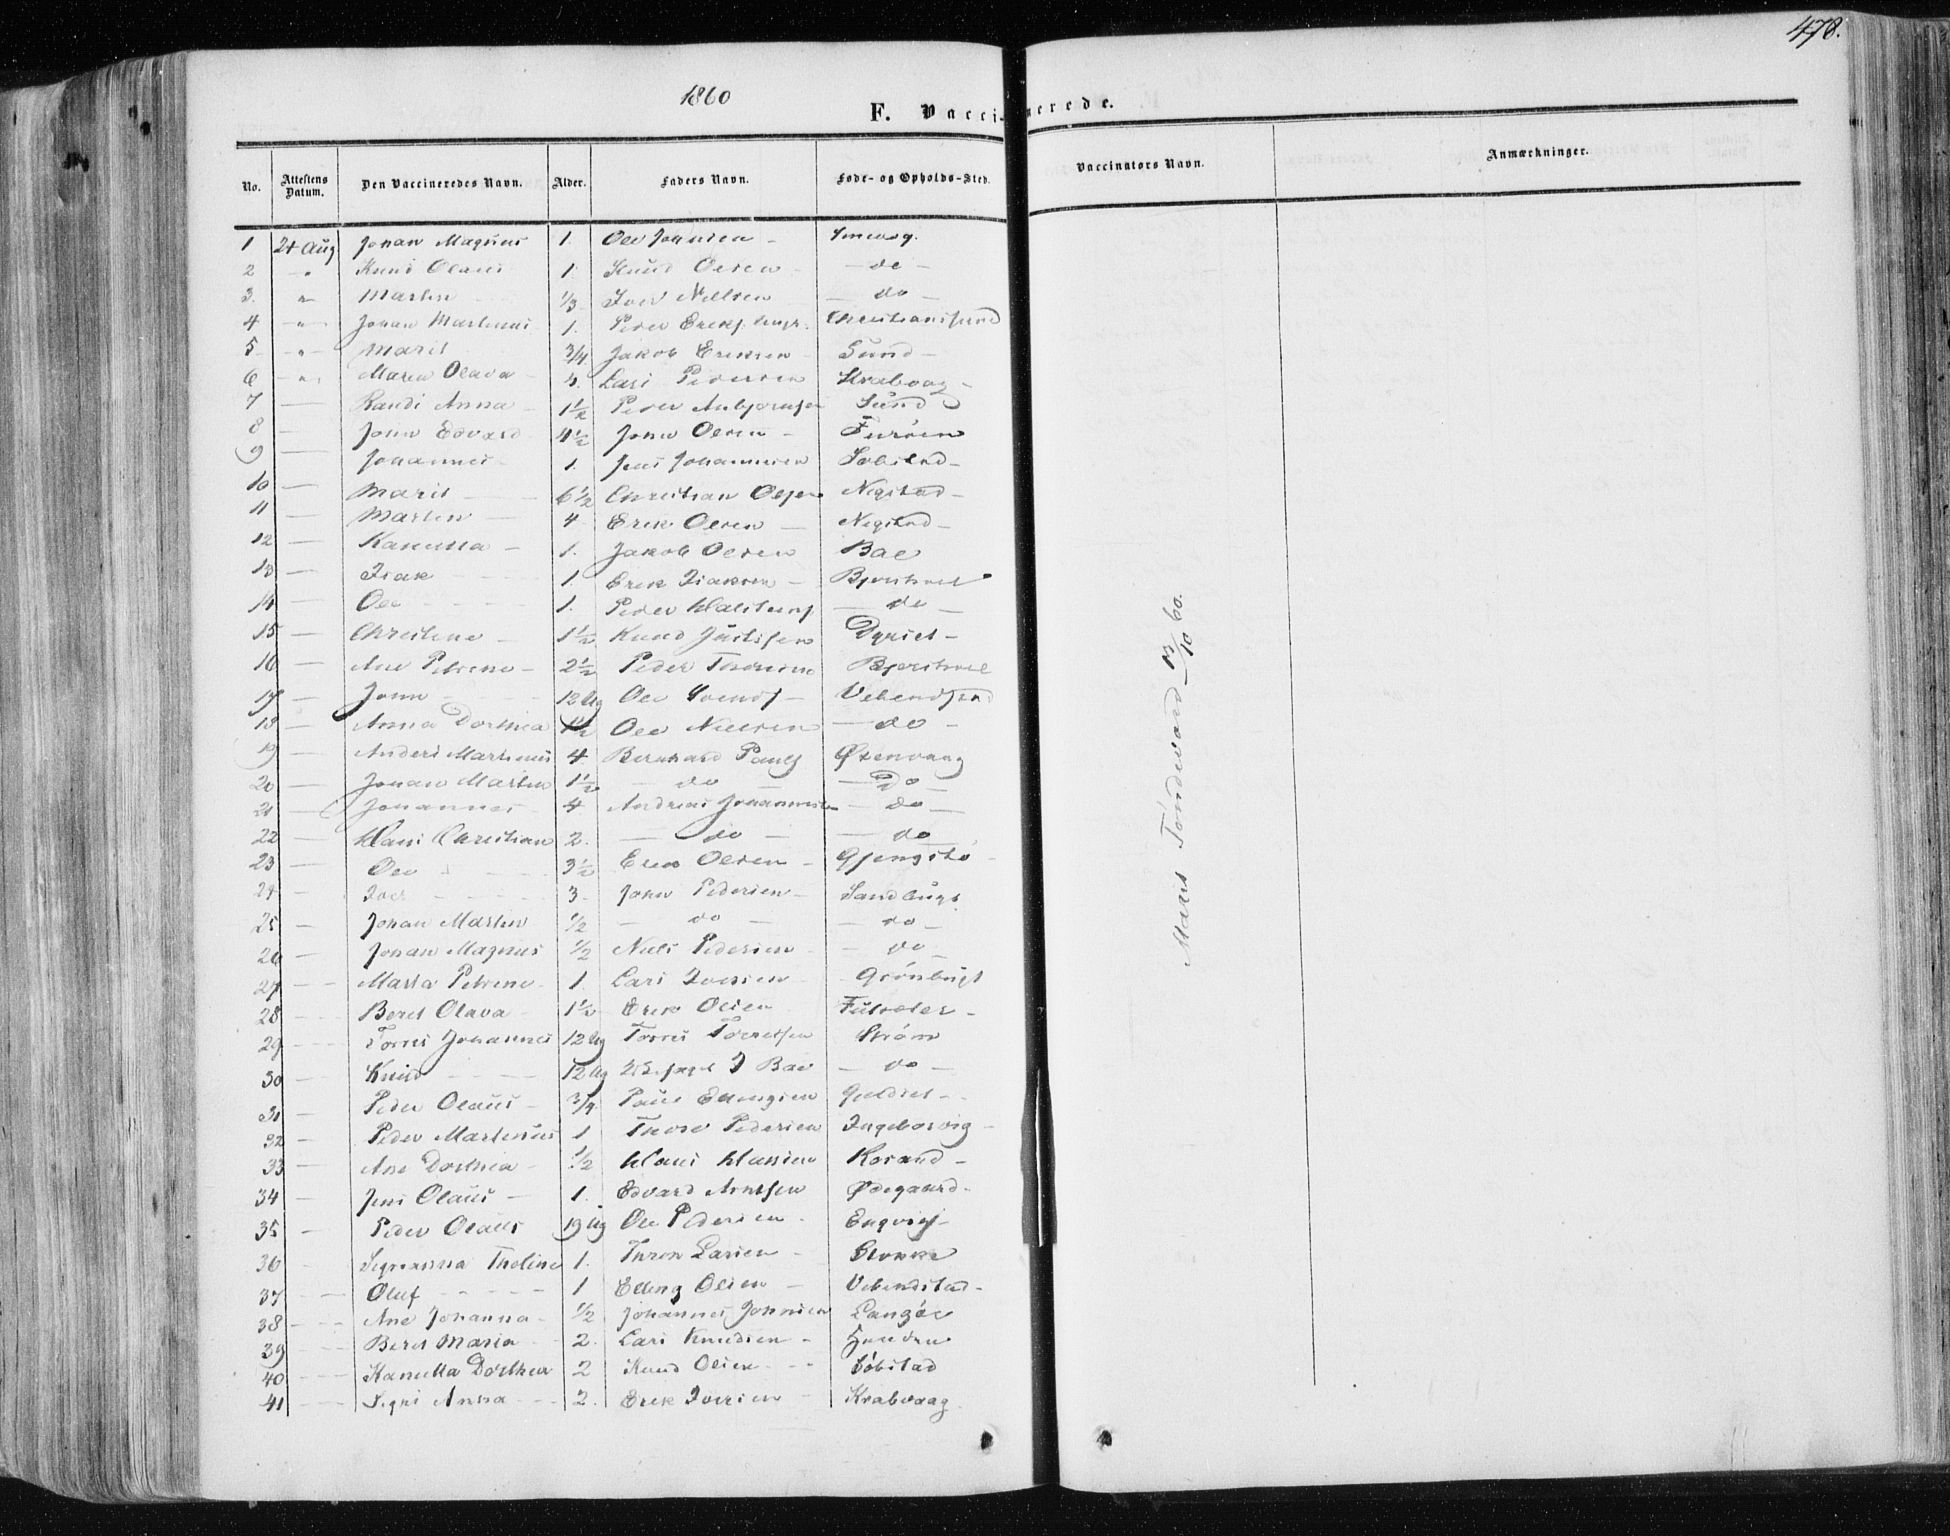 478.
1860
F. Vaccinerede.
No. Attestens Datum. Den Vaccineredes Navn. Alder. Faders Navn. Føde- og Opholds-Sted. Vaccinators Navn. Anmærkninger.
1 24 Aug Johan Magnus 1. Ole Johnsen -
2 - " Knud Olaus 1 Knud Olsen - - do -
3. " Martin 1/3 Iver Nielsen - do -
4 - " - Johan Martinus 1. Peder Christiansund
5 - " - Marit 3/4 Jakob Eriksen - Sund -
6 - " - Maren Olava - Lars Pedersen Krabvaag -
7 — Randi Anna - 1½ Peder Anbjørnsen Sund
8 — John Edvard 4½ John Olsen -
9 — Johannes - 1. Jens Johannesen
10 — Marit - 6½ Christian Olsen Negstad -
11 — Martin — 4 Erik Olsen — Negstad -
12 — Kanutta - 1. Jakob Olsen Bae
13 — Isak - 1. Erik Isaksen -
14 — Ole - - - 1. Peder — do —
15 — Christine - 1½ Knud Dyrset -
16 — Ane Petrine - 2½ Peder
17 — John - - 12 Ug Ole
18 — Anna Dorthea 1½ Ole Nielsen — do -
19 — Anders Martinus 4 Bernhard Øxenvaag
20 — Johan Martin 1½ — do — Do -
21 — Johannes 4 Andreas Johannesen — do —
22 — Hans Christian 2. — do — — do
23 — Ole - - - 3½ Erik Olsen - Gjengstø -
24 — Iver - - - 3. John Pedersen - Sandbugt
25 — Johan Martin ½ — do — — do —
26 — Johan Magnus ½ Niels Pedersen - — do -
27 - - Marta Petrine - 1. Lars Iversen Grönbugt
28 - - Beret Olava - 1½ Erik Olsen Fulvelen -
29 - - Torris Johannes 12 Ug Torris Torrisen Strøm
30 — Knud - - - 12 Ug Bae — do —
31 — Peder Olaus - 3/4 Paul Ellingsen
32 — Peder Martinus 1 Thore Pedersen Ingeborvig -
33 — Ane Dorthea - ½ Hans Hansen -
34 — Jens Olaus - 1. Edvard Arntsen Ødegaard -
35 — Peder Olaus 19 Ug Ole Pedersen - Engvig -
36 - Thron Larsen -
37 - - Oluf - - - - - 1 Elling Olsen — Vebenstad -
38 - - Ane Johanna - ½ Johannes Johnsen Langöe
39 - - Beret Maria - 2. Lars Knudsen -
40 - - Kanutta Dorthea 2 Knud Olsen - - Söbstad
41 - - Segri Anna - - 2. Erik Iversen - Krabvaag
13/10 60.